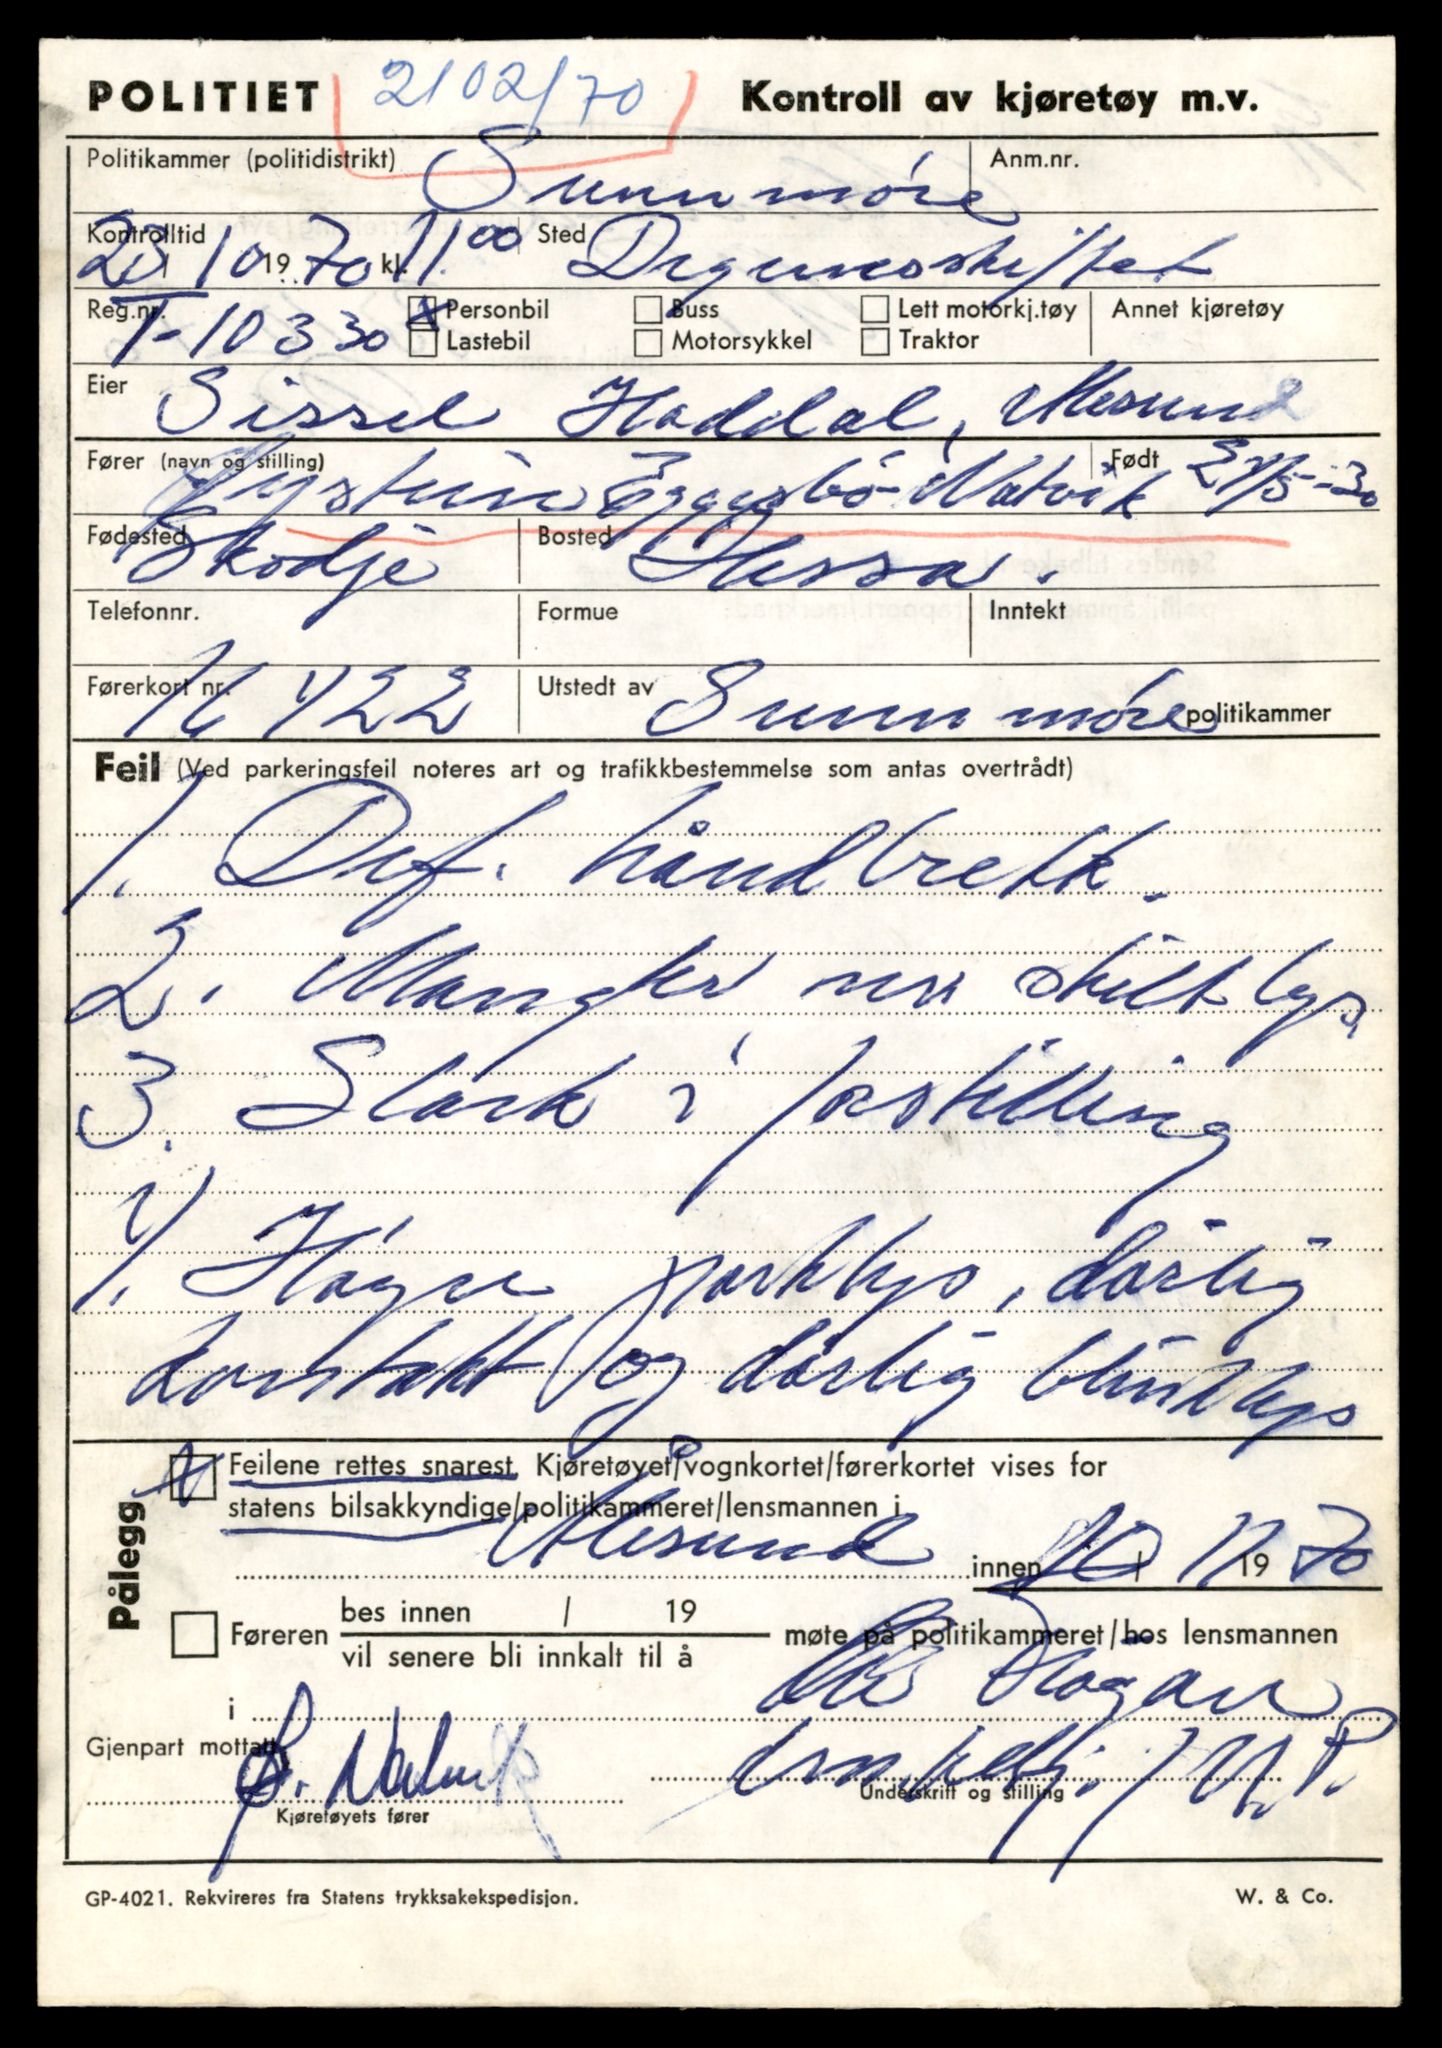 POLITIET 2102/70 Kontroll av kjøretøy m.v.
Politikammer (politidistrikt) Sunnmöre Anm.nr.
Kontrolltid 23/10 1970 kl. 11.00 Sted
Reg.nr. T-10330 x Personbil Buss Lett motorkj.tøy Annet kjøretøy
Lastebil Motorsykkel Traktor
Eier Sissel Haddal, Ålesund
Fører (navn og stilling) Öystein Eggesbö Natvik Født 5-30
Fødested Skodje Bosted Hessa.
Telefonnr. Formue Inntekt
Førerkort nr. 16422 Utstedt av Sunnmöre politikammer
Feil (Ved parkeringsfeil noteres art og trafikkbestemmelse som antas overtrådt)
1. Def. håndbrekk.
2. Mangler nr. skilt lys,
3. Slark i forstilling
4. Högre parklys, dårlig
kontakt og dårlig blinklys
Pålegg
x Feilene rettes snarest. Kjøretøyet/vognkortet/førerkortet vises for
statens bilsakkyndige/politikammeret/lensmannen i
Ålesund innen 10/11 1970
Føreren bes innen / 19
vil senere bli innkalt til å møte på politikammeret/hos lensmannen
i
Gjenpart mottatt Ö. Natvik
Kjøretøyets fører Underskrift og stilling
GP-4021. Rekvireres fra Statens trykksakekspedisjon. W. & Co.